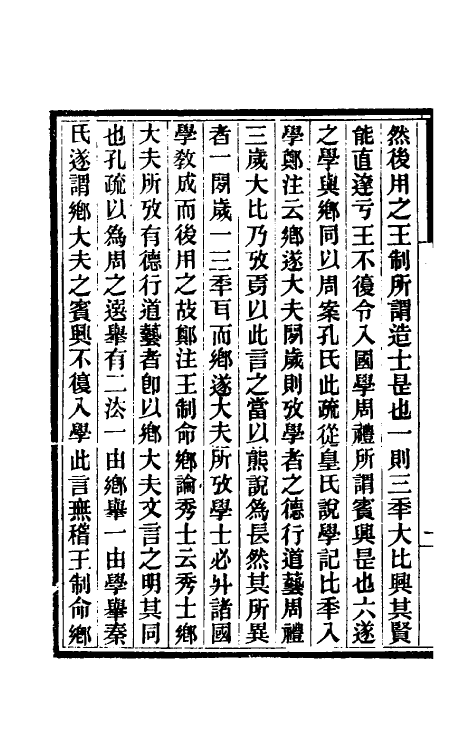 然後用之王制所謂造士是也一則三秊大比興其賢
能直達亏王不復令入國學周禮所謂賓興是也六遂
之學與鄉同以周案孔氏此疏從皇氏說學記比秊入
學鄭注云鄉遂大夫閒歲則攷學者之德行道藝周禮
三歲大比乃攷焉以此言之當以熊說為長然其所異
者一閒歲一三秊耳而鄉遂大夫所攷學士必升諸國
學敎成而後用之故鄭注王制命鄉論秀士云秀士鄉
大夫所攷有德行道藝者卽以鄉大夫文言之明其同
也孔疏以為周之選舉有二㳒一由鄉舉一由學舉秦
氏遂謂鄉大夫之賓興不復入學此言無稽王制命鄉
二